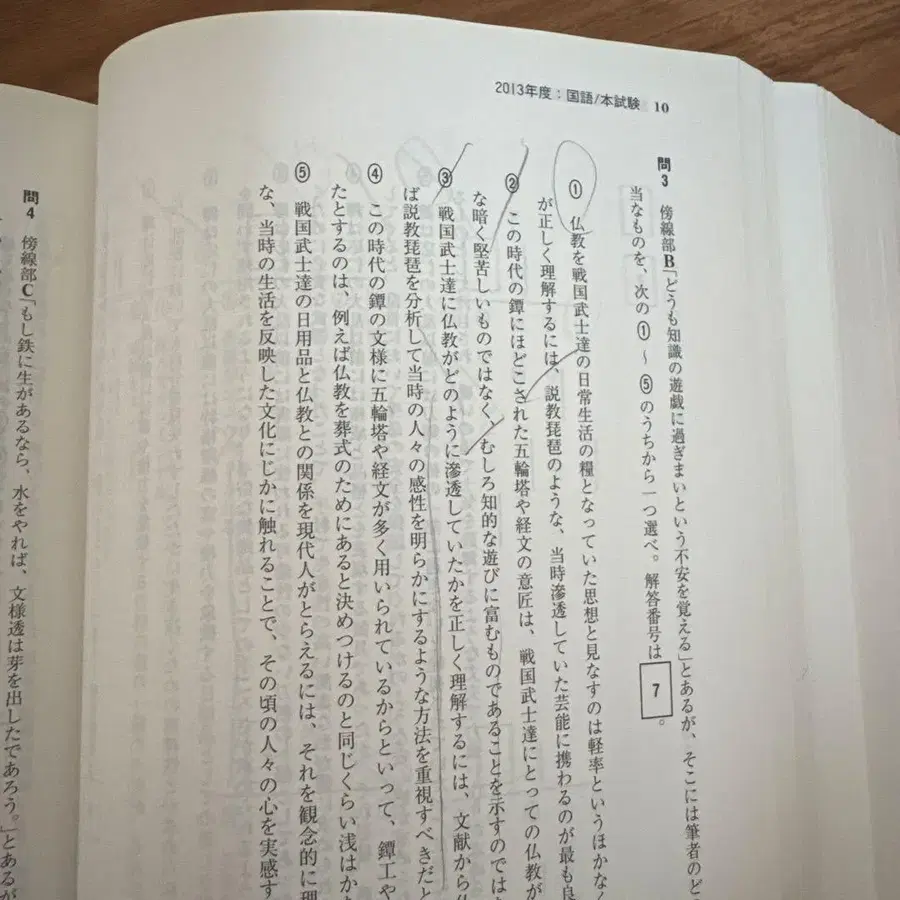 2013年度：国語/本試験 10
問3 傍線部B「どうも知識の遊戯に過ぎまいという不安を覚える」とあるが、そこには筆者のど
当なものを、次の①～⑤のうちから一つ選べ。解答番号は 7 。
① 仏教を戦国武士達の日常生活の糧となっていた思想と見なすのは軽率というほかなく
が正しく理解するには、説教琵琶のような、当時滲透していた芸能に携わるのが最も良
② この時代の鐔にほどこされた五輪塔や経文の意匠は、戦国武士達にとっての仏教が
な暗く堅苦しいものではなく、むしろ知的な遊びに富むものであることを示すのでは
③ 戦国武士達に仏教がどのように滲透していたかを正しく理解するには、文献から仏
ば説教琵琶を分析して当時の人々の感性を明らかにするような方法を重視すべきだと
④ この時代の鐔の文様に五輪塔や経文が多く用いられているからといって、鐔工や
たとするのは、例えば仏教を葬式のためにあると決めつけるのと同じくらい浅はか
⑤ 戦国武士達の日用品と仏教との関係を現代人がとらえるには、それを観念的に理
な、当時の生活を反映した文化にじかに触れることで、その頃の人々の心を実感す
問4 傍線部C「もし鉄に生があるなら、水をやれば、文様透は芽を出したであろう。」とあるが